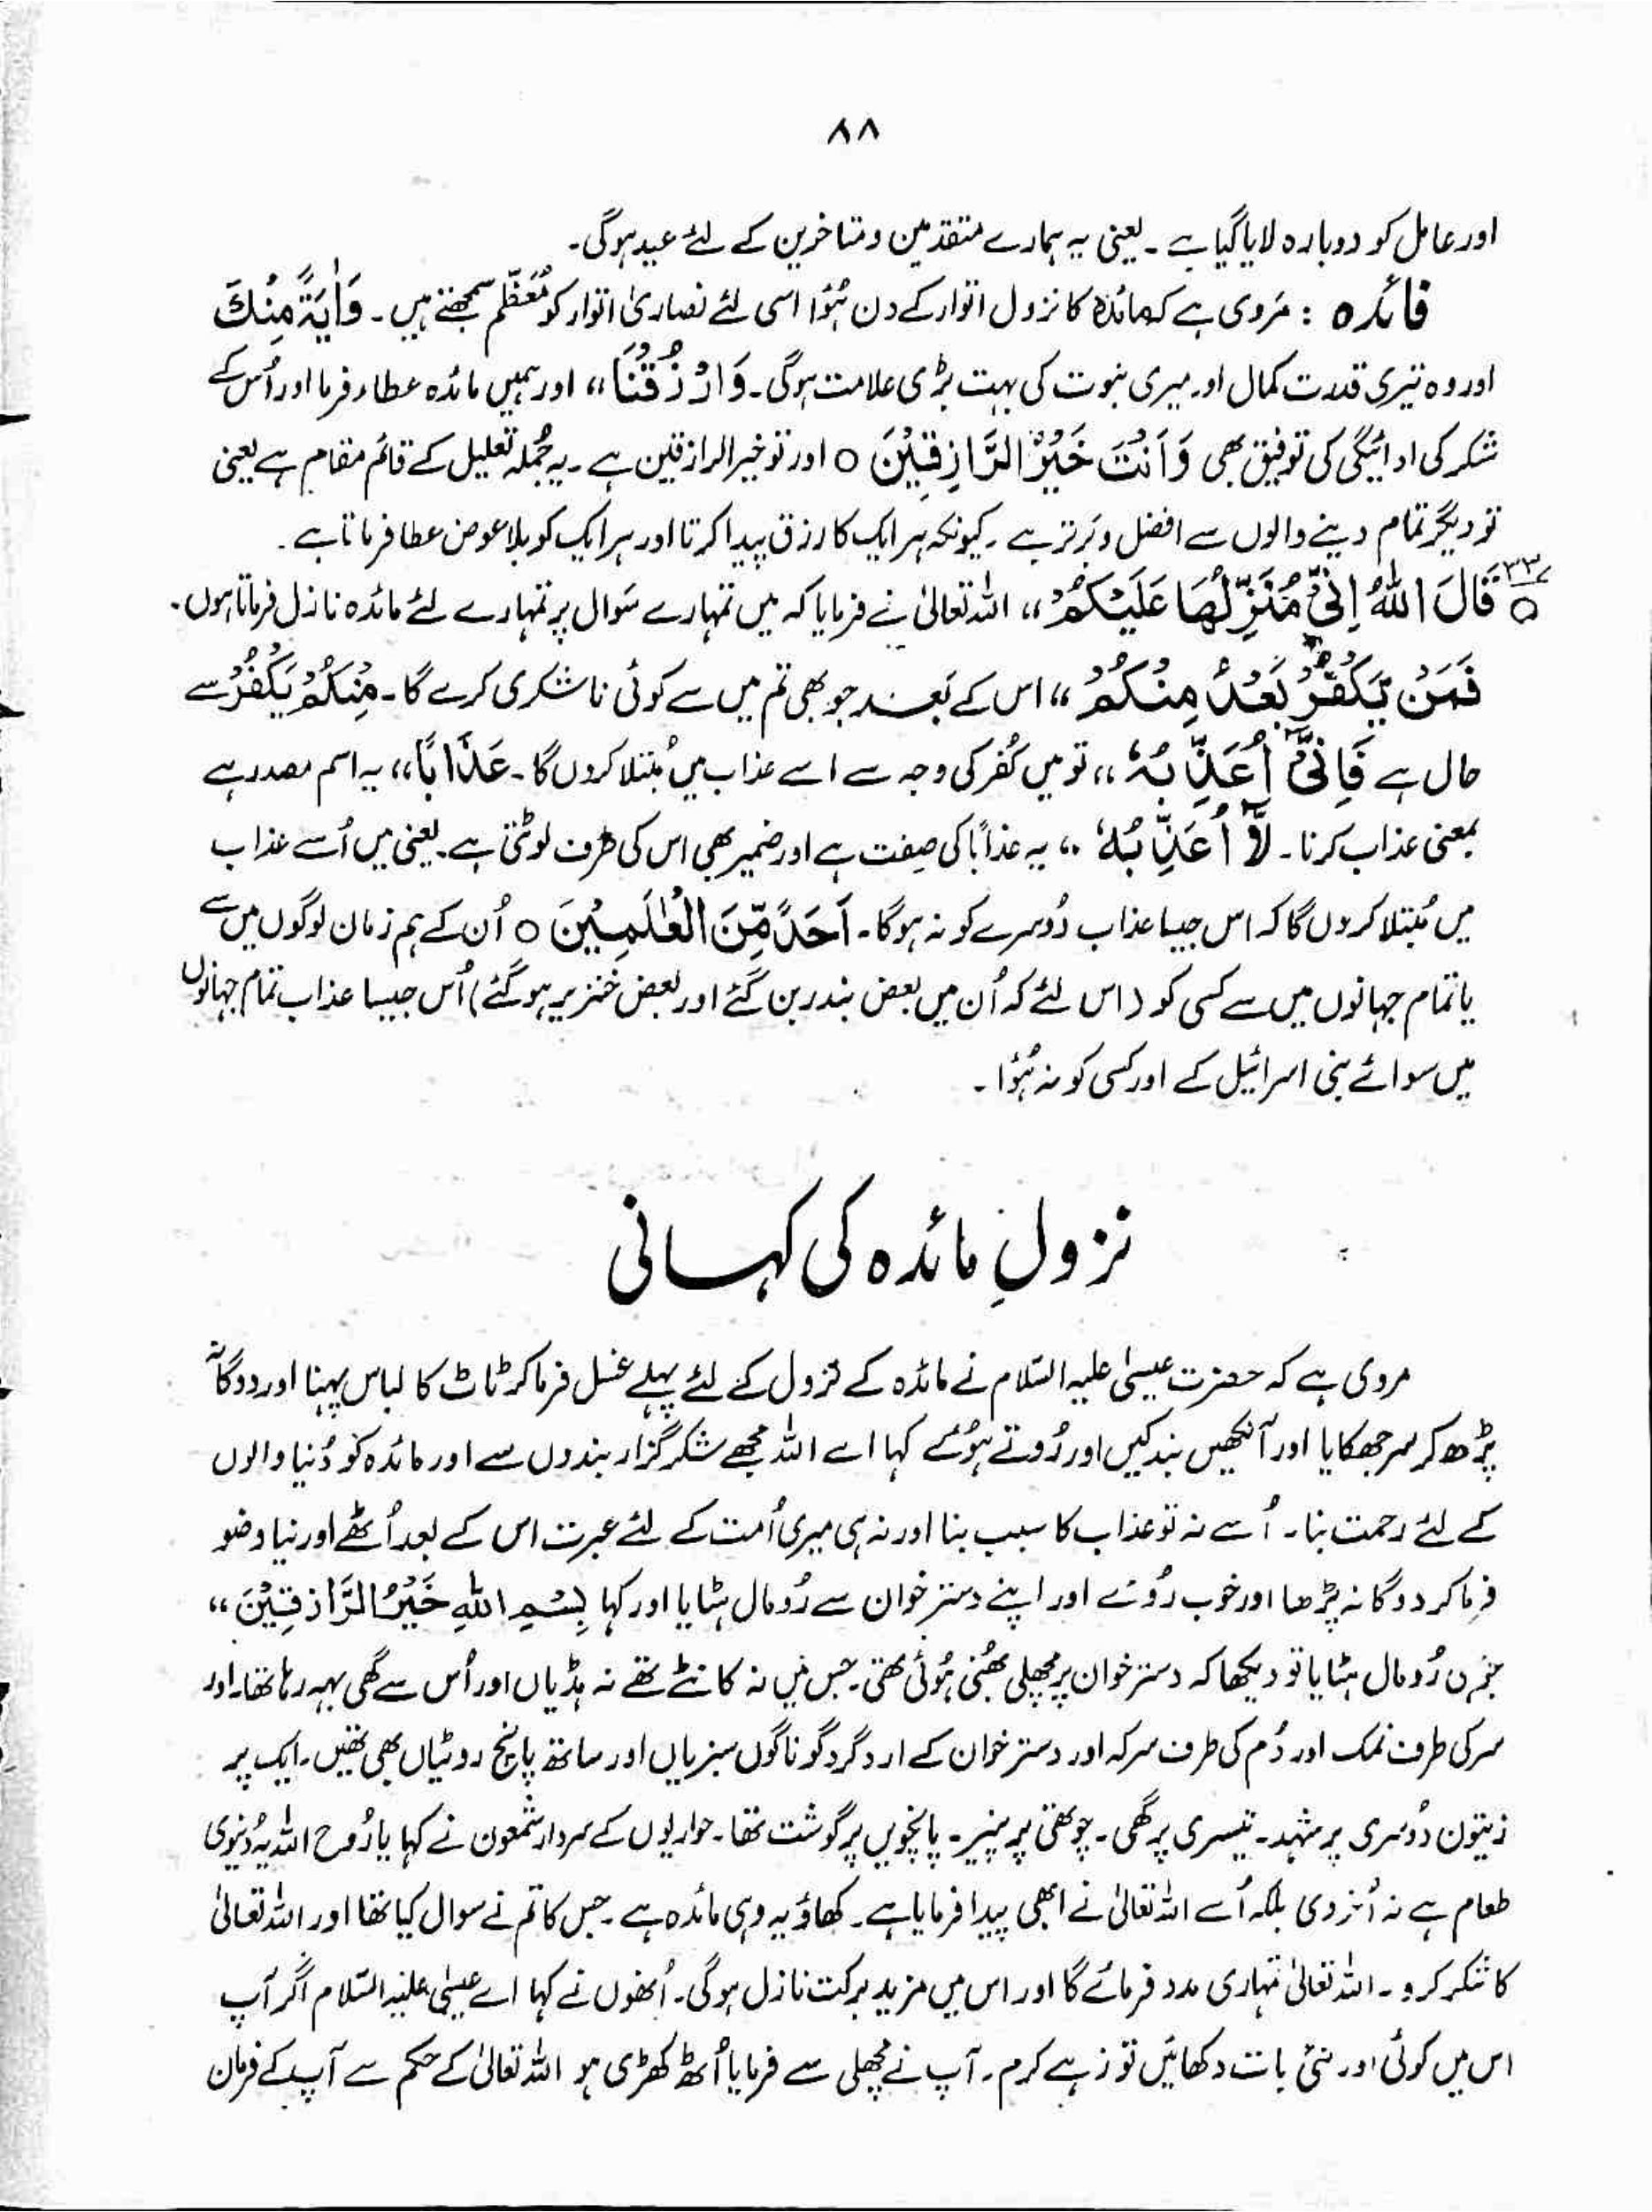 ۸۸
اور عامل کو دوبارہ لایا گیا ہے ۔ یعنی یہ ہمارے متقدمین و متاخرین کے لئے عید ہوگی۔
فائدہ : مَروی ہے کہ مائدہ کا نزول اتوار کے دن ہُوَا اسی لئے نصاریٰ اتوار کو مُعَظَّم سمجھتے ہیں ۔ وَاٰیَۃً مِّنْكَ
اور وہ تیری قدرت کمال اور میری نبوت کی بہت بڑی علامت ہوگی ۔ وَارْزُقْنَا ،، اور ہمیں مائدہ عطاء فرما اور اُس کے
شکر کی ادائیگی کی توفیق بھی وَاَنْتَ خَیْرُ الرَّازِقِیْنَ ○ اور تو خیر الرازقین ہے ۔ یہ جُملہ تعلیل کے قائم مقام ہے یعنی
تو دیگر تمام دینے والوں سے افضل و برتر ہے ۔ کیونکہ ہر ایک کا رزق پیدا کرتا اور ہر ایک کو بلا عوض عطا فرماتا ہے ۔
○ قَالَ اللّٰہُ اِنِّیْ مُنَزِّلُھَا عَلَیْکُمْ ،، اللہ تعالیٰ نے فرمایا کہ میں تمہارے سَوال پر تمہارے لئے مائدہ نازل فرماتا ہوں ۔
فَمَنْ یَّكْفُرْ بَعْدُ مِنْكُمْ ،، اس کے بَعد جو بھی تم میں سے کوئی ناشکری کرے گا ۔ مِنْكُمْ یَكْفُرْ سے
حال ہے فَاِنِّیْٓ اُعَذِّبُہٗ ،، تو میں کُفر کی وجہ سے اسے عذاب میں مُبتلا کروں گا ۔ عَذَابًا ،، یہ اسم مصدر ہے
بمعنی عذاب کرنا ۔ لَّآ اُعَذِّبُہٗ ،، یہ عذابًا کی صِفت ہے اور ضمیر بھی اس کی طرف لوٹتی ہے ۔ یعنی میں اُسے عذاب
میں مُبتلا کروں گا کہ اس جیسا عذاب دُوسرے کو نہ ہوگا ۔ اَحَدًا مِّنَ الْعٰلَمِیْنَ ○ اُن کے ہم زمان لوگوں میں سے
یا تمام جہانوں میں سے کسی کو (اس لئے کہ اُن میں بعض بندر بن گئے اور بعض خنزیر ہو گئے) اُس جیسا عذاب تمام جہانوں
میں سوائے بنی اسرائیل کے اور کسی کو نہ ہُوَا ۔
نزولِ مائدہ کی کہانی
مروی ہے کہ حضرت عیسیٰ علیہ السّلام نے مائدہ کے نزول کے لئے پہلے غسل فرما کر ٹاٹ کا لباس پہنا اور دوگانہ
پڑھ کر سر جھکایا اور آنکھیں بند کیں اور رُوتے ہُوئے کہا اے اللہ مجھے شکر گزار بندوں سے اور مائدہ کو دُنیا والوں
کے لئے رحمت بنا ۔ اُسے نہ تو عذاب کا سبب بنا اور نہ ہی میری اُمت کے لئے عبرت اس کے بعد اُٹھے اور نیا وضو
فرما کر دوگانہ پڑھا اور خوب رُوئے اور اپنے دستر خوان سے رُومال ہٹایا اور کہا بِسْمِ اللّٰہِ خَیْرُ الرَّازِقِیْنَ ،،
رُومال ہٹایا تو دیکھا کہ دستر خوان پر مچھلی بھُنی ہُوئی تھی ۔ جس میں نہ کانٹے تھے نہ ہڈیاں اور اُس سے گھی بہہ رہا تھا ۔ اور
سر کی طرف نمک اور دُم کی طرف سرکہ اور دستر خوان کے ارد گرد گوناگوں سبزیاں اور ساتھ پانچ روٹیاں بھی تھیں ۔ ایک پر
زیتون دُوسری پر شہد ۔ تیسری پر گھی ۔ چوتھی پر پنیر ۔ پانچویں پر گوشت تھا ۔ حواریوں کے سردار شمعون نے کہا یا رُوح اللہ یہ دُنیوی
طعام ہے نہ اُخروی بلکہ اُسے اللہ تعالیٰ نے ابھی پیدا فرمایا ہے ۔ کھاؤ یہ وہی مائدہ ہے ۔ جس کا تم نے سوال کیا تھا اور اللہ تعالیٰ
کا شکر کرو ۔ اللہ تعالیٰ تمہاری مدد فرمائے گا اور اس میں مزید برکت نازل ہوگی ۔ اُنھوں نے کہا اے عیسیٰ علیہ السّلام اگر آپ
اس میں کوئی اور نئی بات دکھائیں تو زہے کرم ۔ آپ نے مچھلی سے فرمایا اُٹھ کھڑی ہو اللہ تعالیٰ کے حکم سے آپ کے فرمان